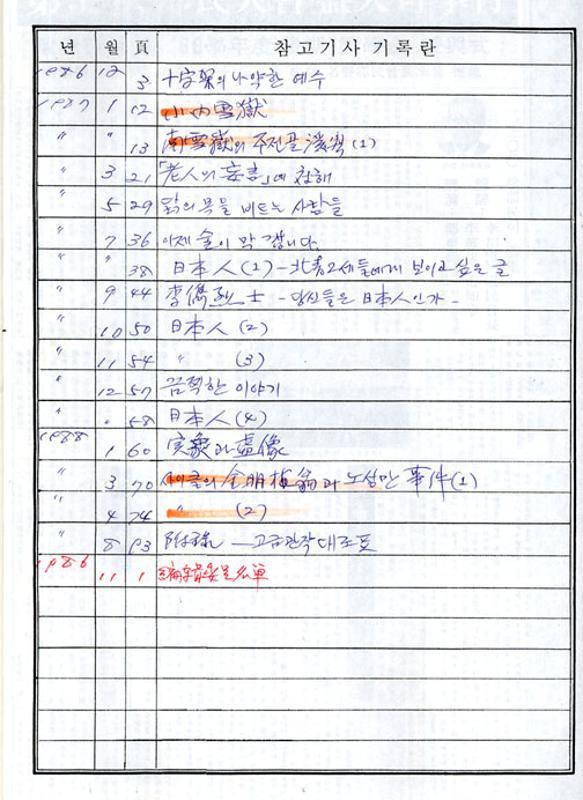 년 월 頁 참고기사 기록란
1986 12 3 十字架의 나약한 예수
1987 1 12 小小雪嶽
" " 13 南雪嶽의 주전골 (1)
" 3 21 「老人의 」에 첨해
" 5 29 닭의 목을 비트는 사람들
" 7 36 이제 술이 막 갑니다.
" " 38 日本人 (1) - 北靑2세들에게 보이고 싶은 글
" 9 44 李儁烈士 - 당신들은 日本人인가 -
" 10 50 日本人 (2)
" 11 54 " (3)
" 12 57 끔찍한 이야기
" " 58 日本人 (4)
1988 1 60 実象과 虛像
" 3 70 金 翁과 노상만 事件 (1)
" 4 74 " (2)
" 8 93 附錄 - 고급관작대조표
1986 11 1 名單